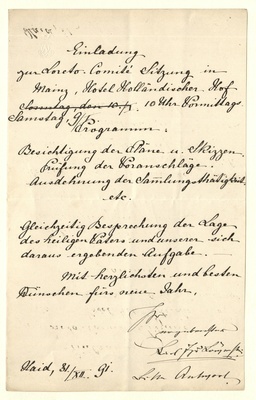 Einladung
zur Loreto-Comité Sitzung in
Mainz, Hotel Holländischer Hof
Sonntag, den 10/I. 10 Uhr Vormittags
Samstag 9/I
Programm.
Besichtigung der Pläne u. Skizzen.
Prüfung der Voranschläge.
Ausdehnung der Sammlungsthätigkeit.
etc.
Gleichzeitig Besprechung der Lage
des heiligen Vaters und unserer sich
daraus ergebenden Aufgabe.
Mit herzlichsten und besten
Wünschen fürs neue Jahr,
Ihr
Haid, 31/XII. 91.
Antwort